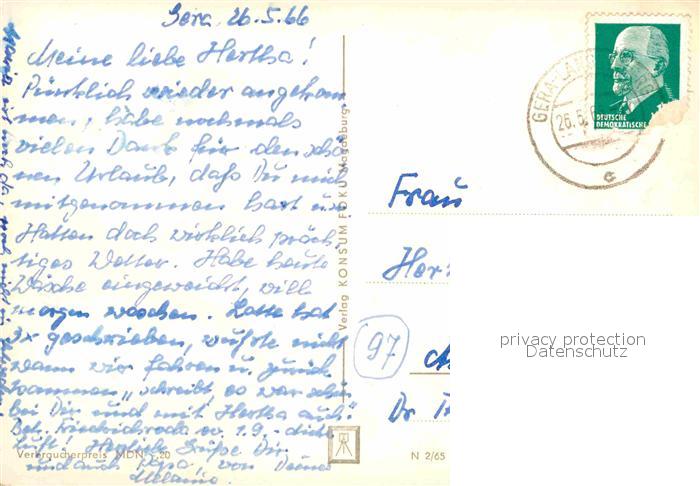 Gera, 26.5.66
Meine liebe Hertha!
Pünktlich wieder angekom
men, habe nochmals
vielen Dank für den schö
nen Urlaub, daß Du mich
mitgenommen hast u.
Hatten doch wirklich präch
tiges Wetter. Habe heute
Wäsche eingeweicht, will
morgen waschen. Lotte hat
3x geschrieben, wußte nicht
wann wir fahren u. zurück
kommen, schreibt, es war schön
bei Dir und mit Hertha auch.
Bet. Friedrichroda 1.9. - dicke
Luft! Herzliche Grüße Dir
und auch Papa, von Deiner
Melanie
Verbraucherpreis MDN -,20
Verlag KONSUM FOKU Magdeburg
N 2/65
GERA
26.5.
c
DEUTSCHE
DEMOKRATISCHE
Frau
Her
97
Dr
privacy protection
Datenschutz